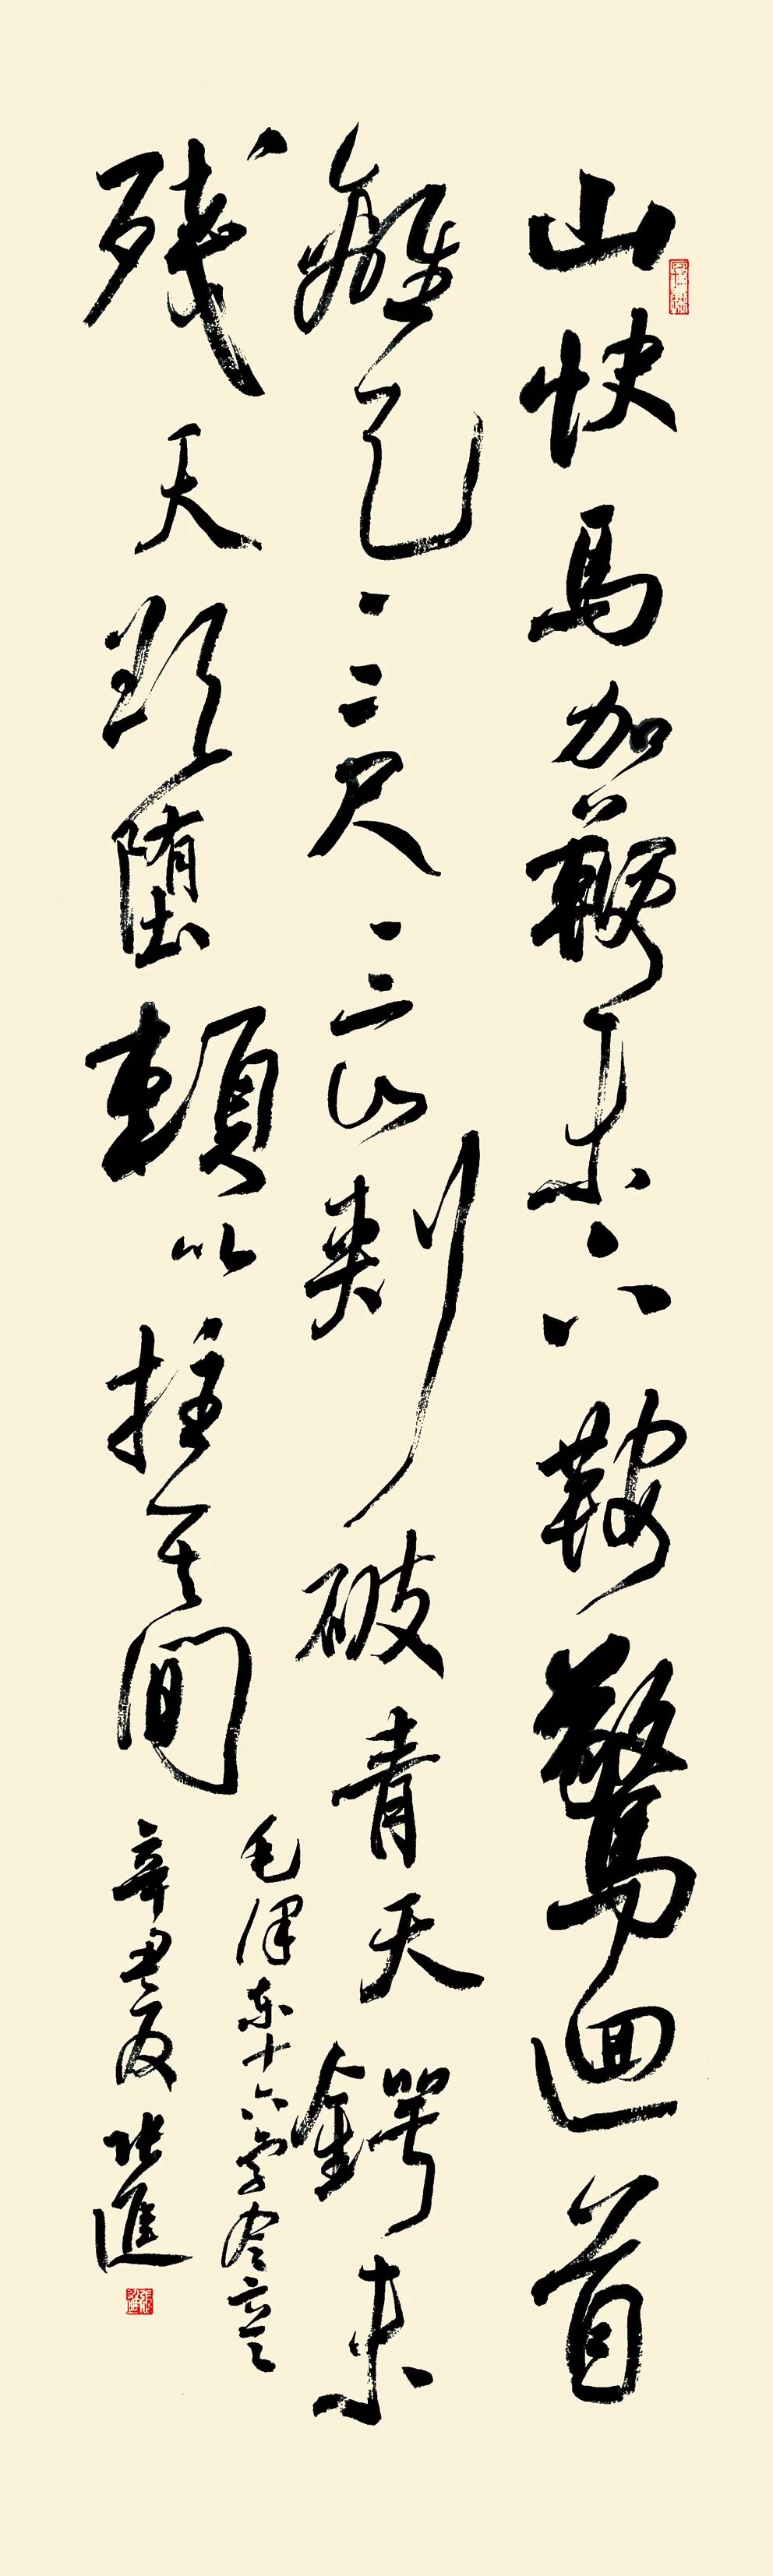 山快馬加鞭未下鞍驚迴首
離天三尺三山刺破青天鍔未
残天欲堕賴以拄其間
毛澤东十六字令
辛丑夏張進